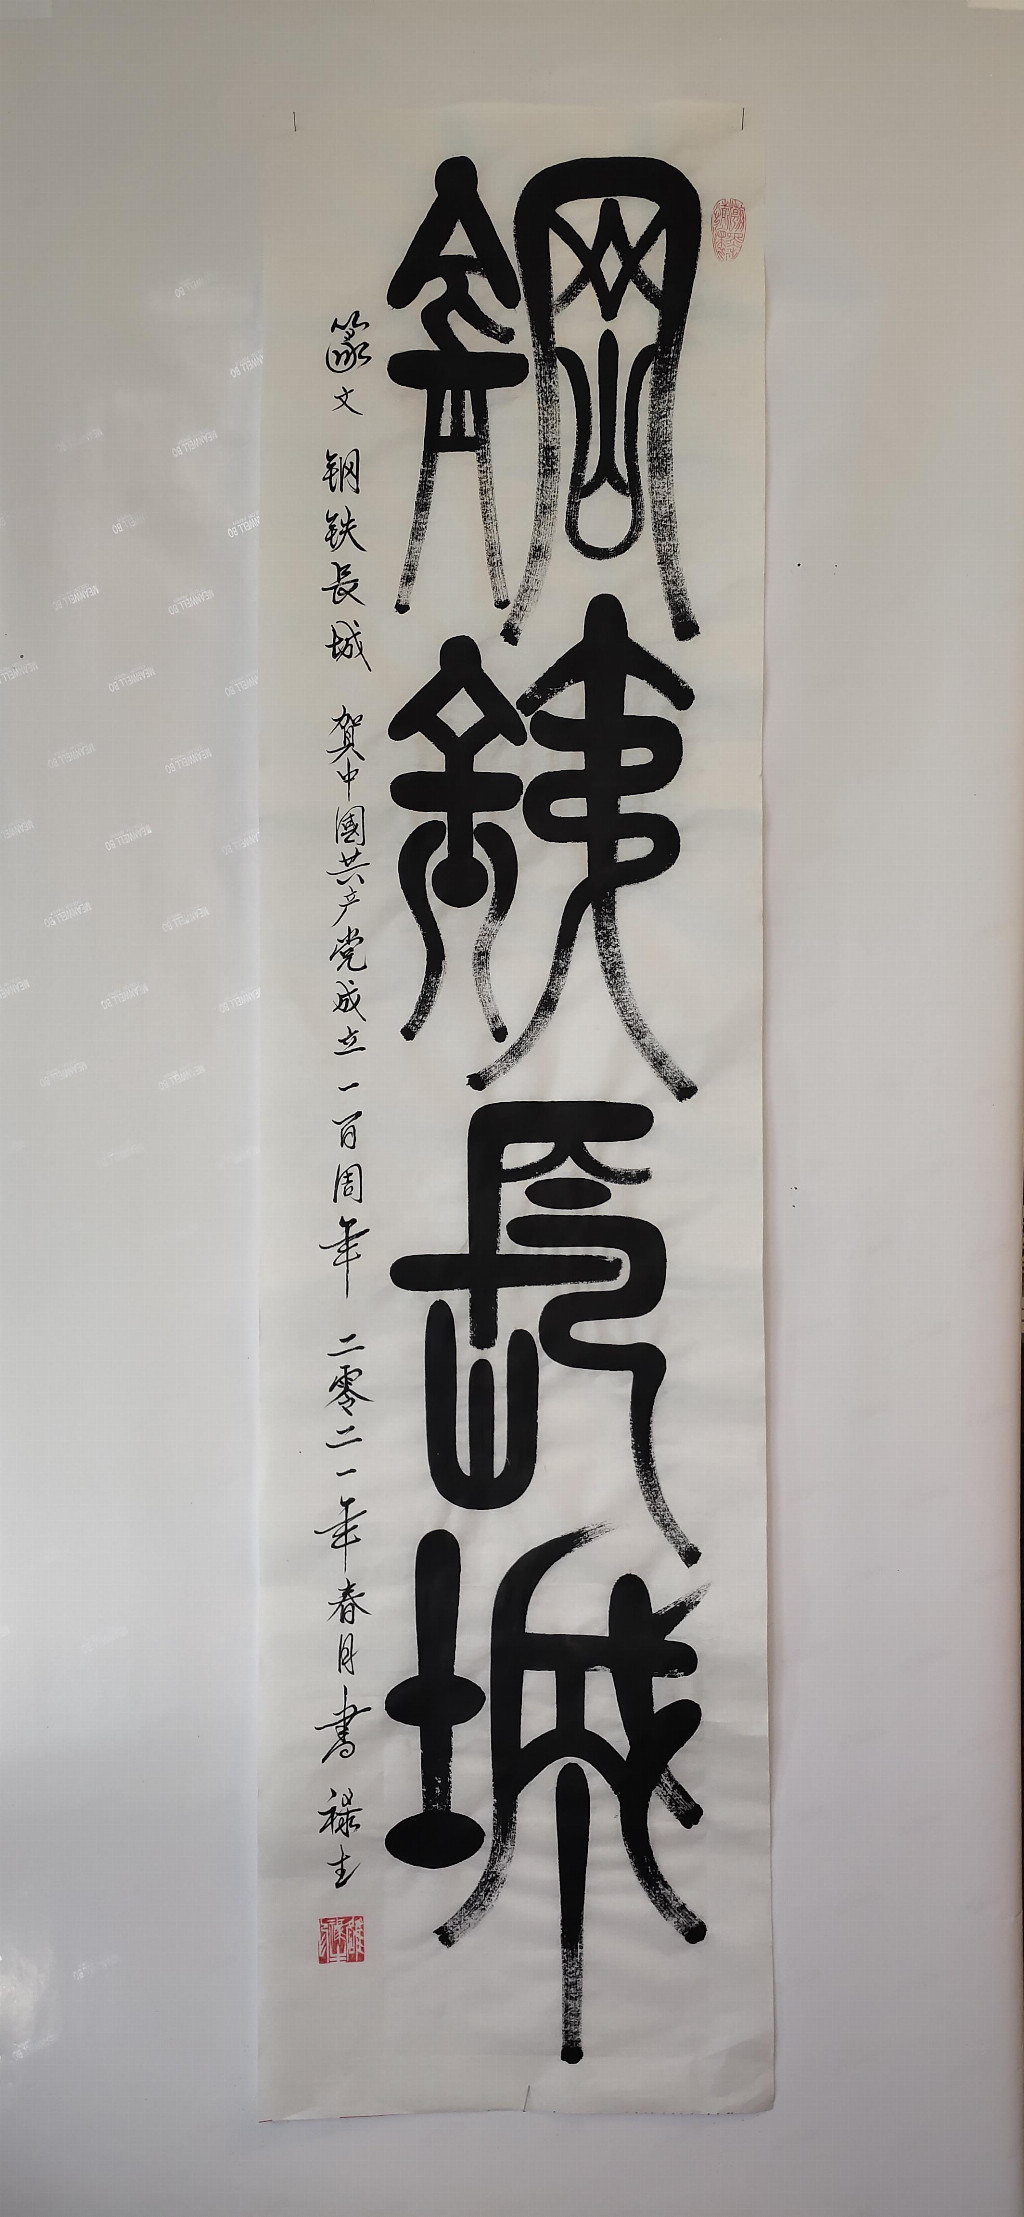 鋼鐵長城
篆文 钢铁長城 贺中國共产党成立一百周年 二零二一年春月書 禄生